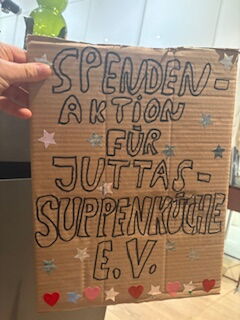 SPENDEN-
AKTION
FÜR
JUTTAS-
SUPPENKÜCHE
E.V.